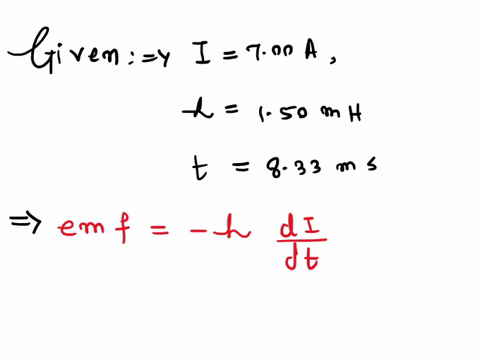 Given :⇒ I = 7.00 A,
L = 1.50 mH
t = 8.33 ms
⇒ emf = -L dI/dt